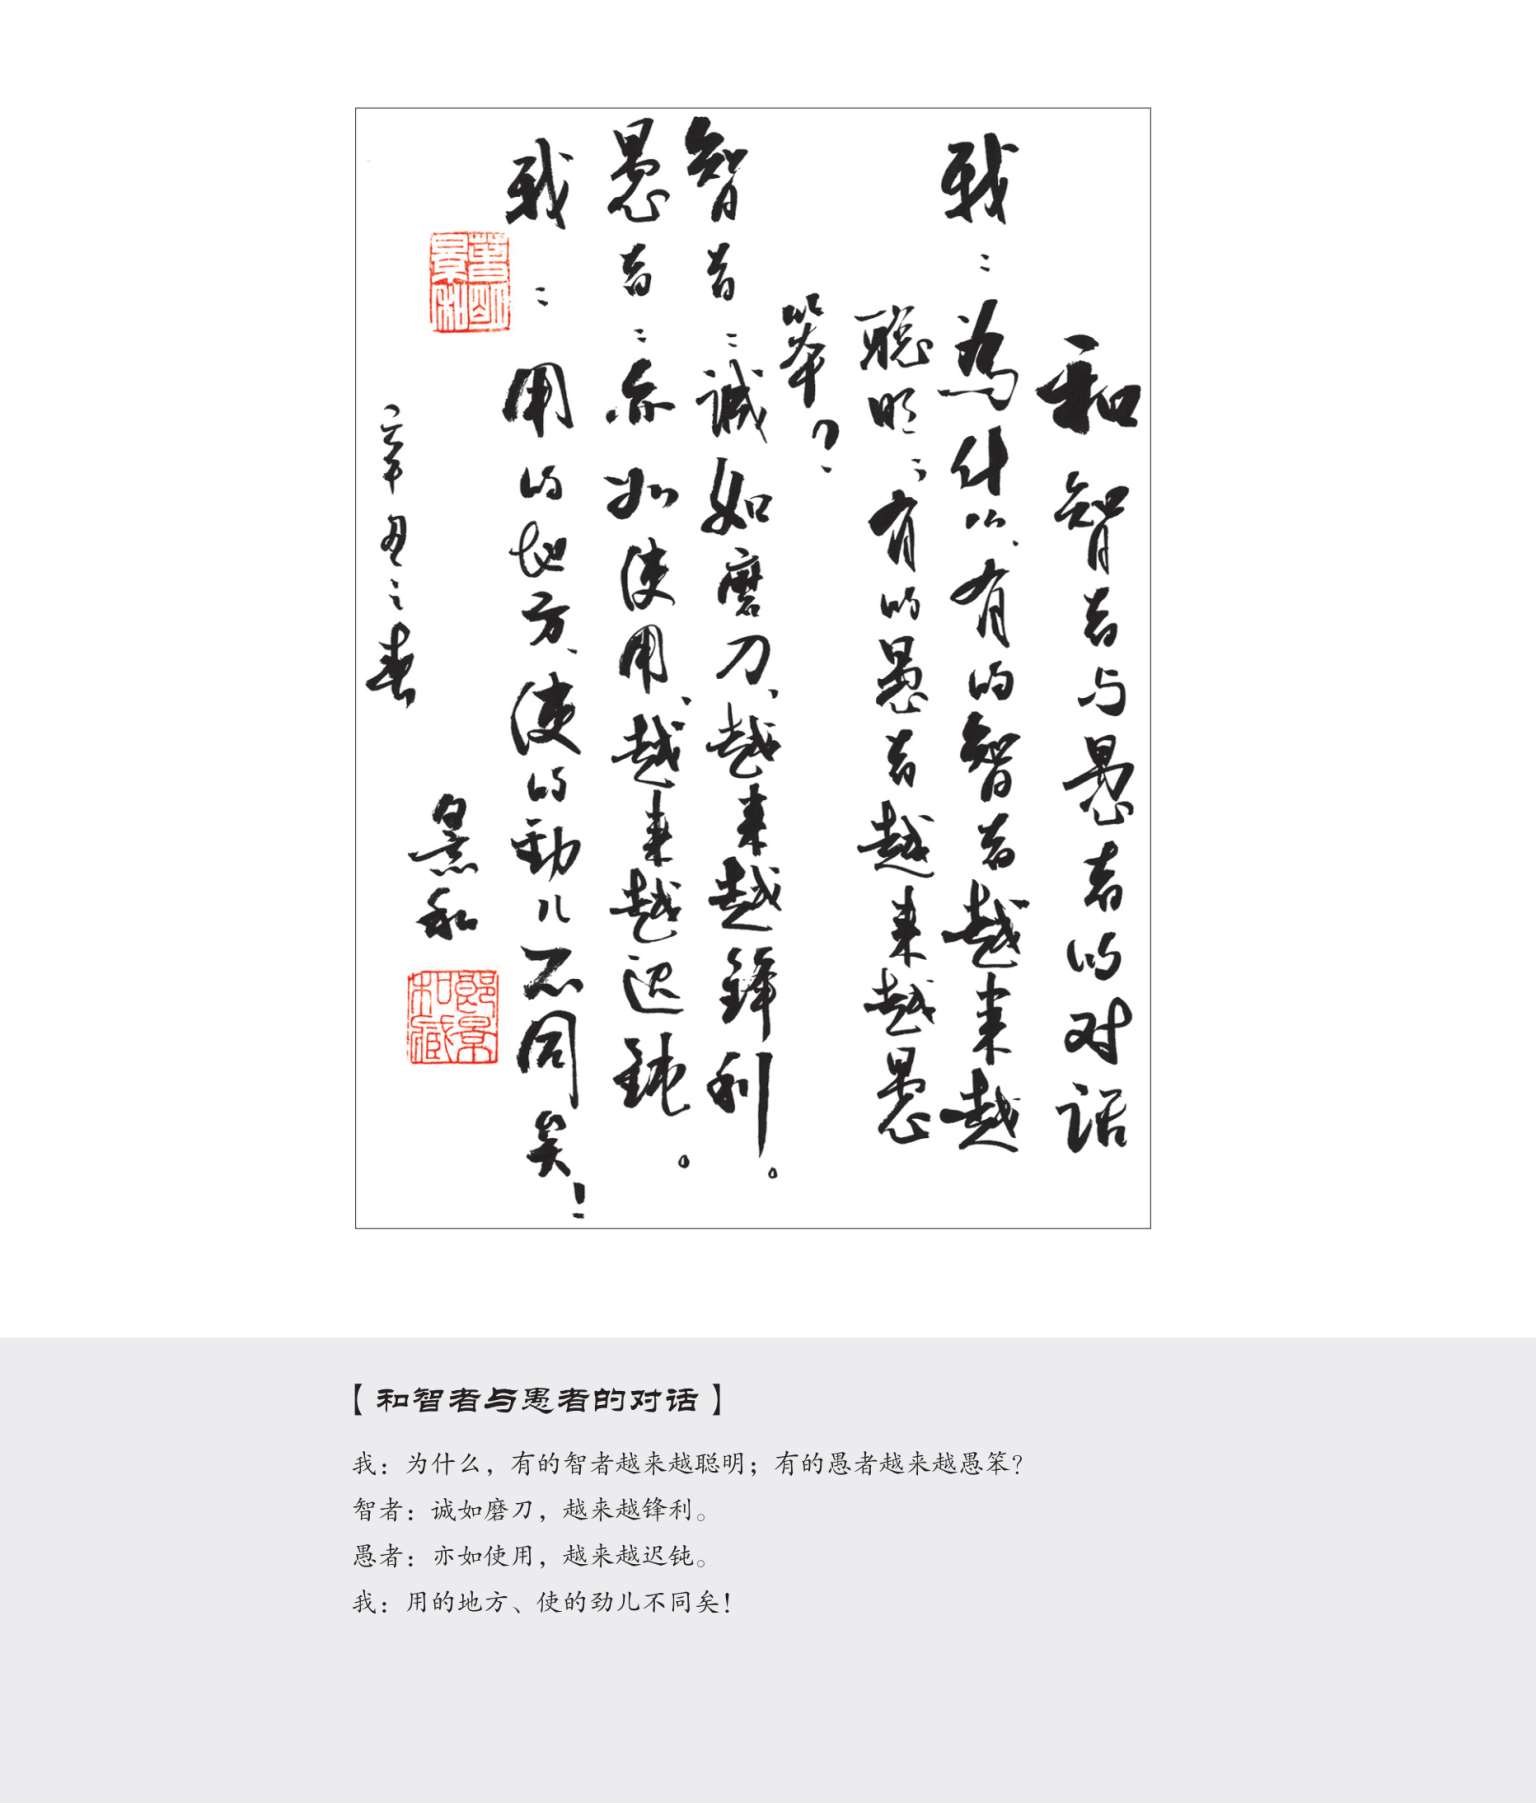 和智者与愚者的对话
我：為什么、有的智者越来越
聪明；有的愚者越来越愚
笨？
智者：诚如磨刀、越来越鋒利。
愚者：亦如使用、越来越迟钝。
我：用的地方、使的劲儿不同矣！
辛丑之春
景和
郎景和藏
【和智者与愚者的对话】
我：为什么，有的智者越来越聪明；有的愚者越来越愚笨？
智者：诚如磨刀，越来越锋利。
愚者：亦如使用，越来越迟钝。
我：用的地方、使的劲儿不同矣！